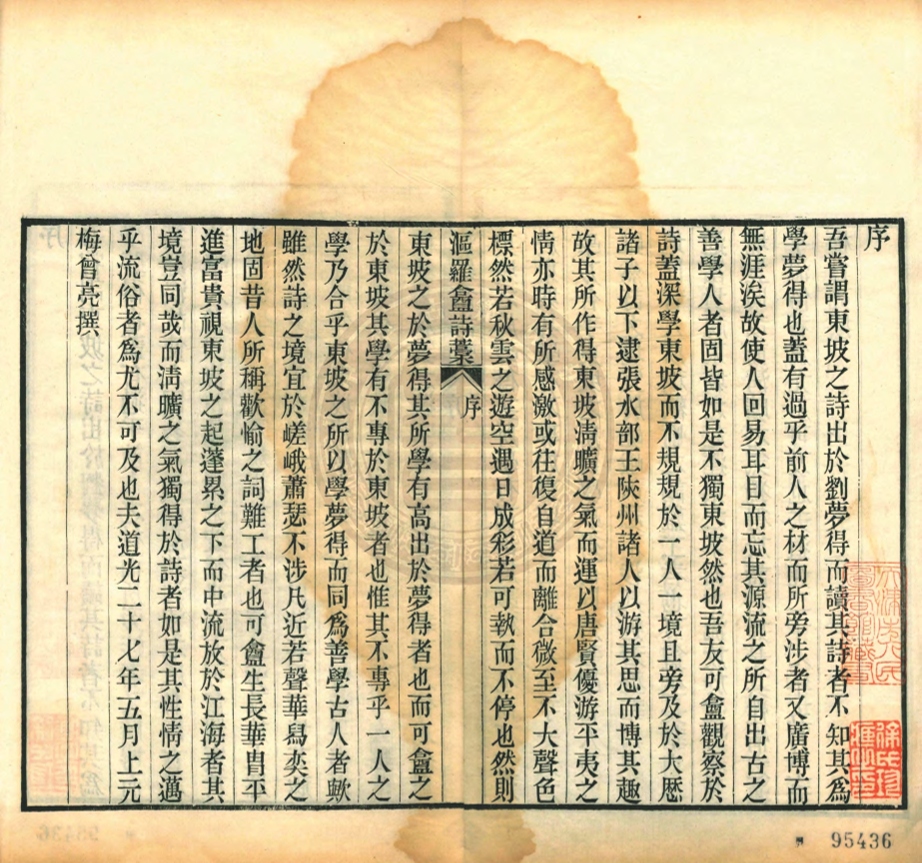 序
吾嘗謂東坡之詩出於劉夢得而讀其詩者不知其爲
學夢得也蓋有過乎前人之材而所旁涉者又廣博而
無涯涘故使人回易耳目而忘其源流之所自出古之
善學人者固皆如是不獨東坡然也吾友可盦觀察於
詩蓋深學東坡而不規規於一人一境且旁及於大厯
諸子以下逮張水部王陜州諸人以游其思而博其趣
故其所作得東坡淸曠之氣而運以唐賢優游平夷之
情亦時有所感激或往復自道而離合微至不大聲色
標然若秋雲之遊空遇日成彩若可執而不停也然則
漚羅盦詩藁 序
東坡之於夢得其所學有高出於夢得者也而可盦之
於東坡其學有不專於東坡者也惟其不專乎一人之
學乃合乎東坡之所以學夢得而同爲善學古人者歟
雖然詩之境宜於嵯峨蕭瑟不涉凡近若聲華舄奕之
地固昔人所稱歡愉之詞難工者也可盦生長華胄平
進富貴視東坡之起蓬累之下而中流放於江海者其
境豈同哉而淸曠之氣獨得於詩者如是其性情之邁
乎流俗者爲尤不可及也夫道光二十七年五月上元
梅曾亮撰
95436